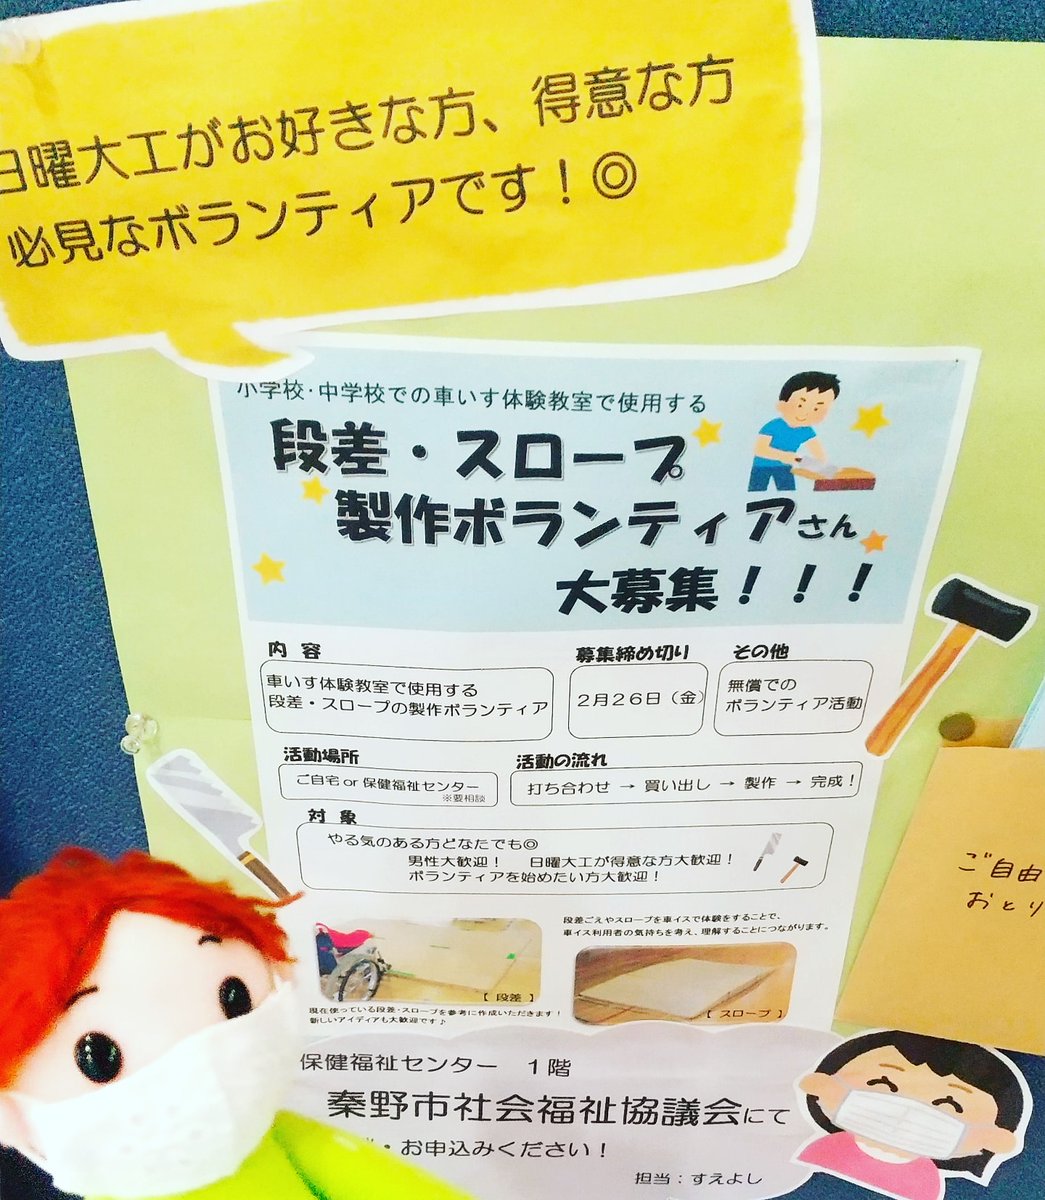 日曜大工がお好きな方、得意な方
必見なボランティアです！◎
小学校・中学校での車いす体験教室で使用する
段差・スロープ
製作ボランティアさん
大募集！！！
内 容
車いす体験教室で使用する
段差・スロープの製作ボランティア
募集締め切り
２月２６日（金）
その他
無償での
ボランティア活動
活動場所
ご自宅 or 保健福祉センター
※要相談
活動の流れ
打ち合わせ → 買い出し → 製作 → 完成！
対 象
やる気のある方どなたでも◎
男性大歓迎！ 日曜大工が得意な方大歓迎！
ボランティアを始めたい方大歓迎！
【 段差 】
現在使っている段差・スロープを参考に作成いただきます！
新しいアイディアも大歓迎です♪
段差ごえやスロープを車イスで体験をすることで、
車イス利用者の気持ちを考え、理解することにつながります。
【 スロープ 】
保健福祉センター １階
秦野市社会福祉協議会にて
・お申込みください！
担当：すえよし
ご自由
おとり